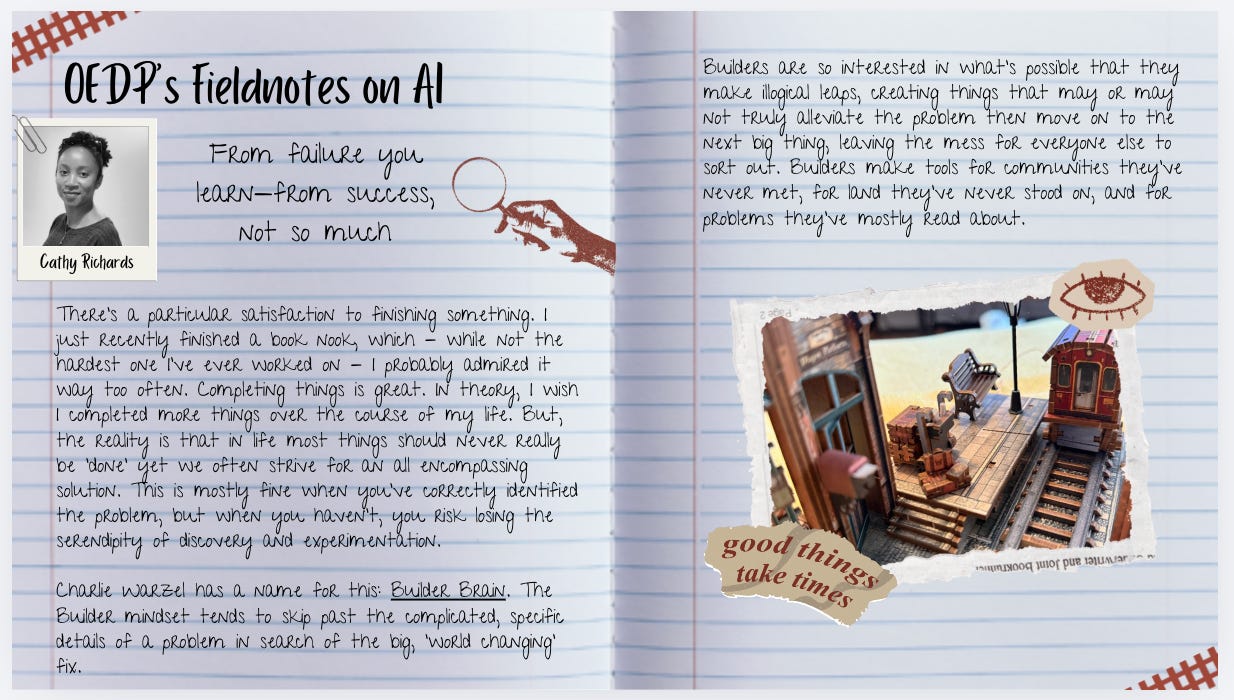 OEDP's Fieldnotes on AI
From failure you
learn—from success,
not so much
Cathy Richards
There's a particular satisfaction to finishing something. I
just recently finished a book nook, which – while not the
hardest one I've ever worked on – I probably admired it
way too often. Completing things is great. In theory, I wish
I completed more things over the course of my life. But,
the reality is that in life most things should never really
be 'done' yet we often strive for an all encompassing
solution. This is mostly fine when you've correctly identified
the problem, but when you haven't, you risk losing the
serendipity of discovery and experimentation.
Charlie Warzel has a name for this: Builder Brain. The
Builder mindset tends to skip past the complicated, specific
details of a problem in search of the big, 'world changing'
fix.
Builders are so interested in what's possible that they
make illogical leaps, creating things that may or may
not truly alleviate the problem then move on to the
next big thing, leaving the mess for everyone else to
sort out. Builders make tools for communities they've
never met, for land they've never stood on, and for
problems they've mostly read about.
Page 2
good things
take times